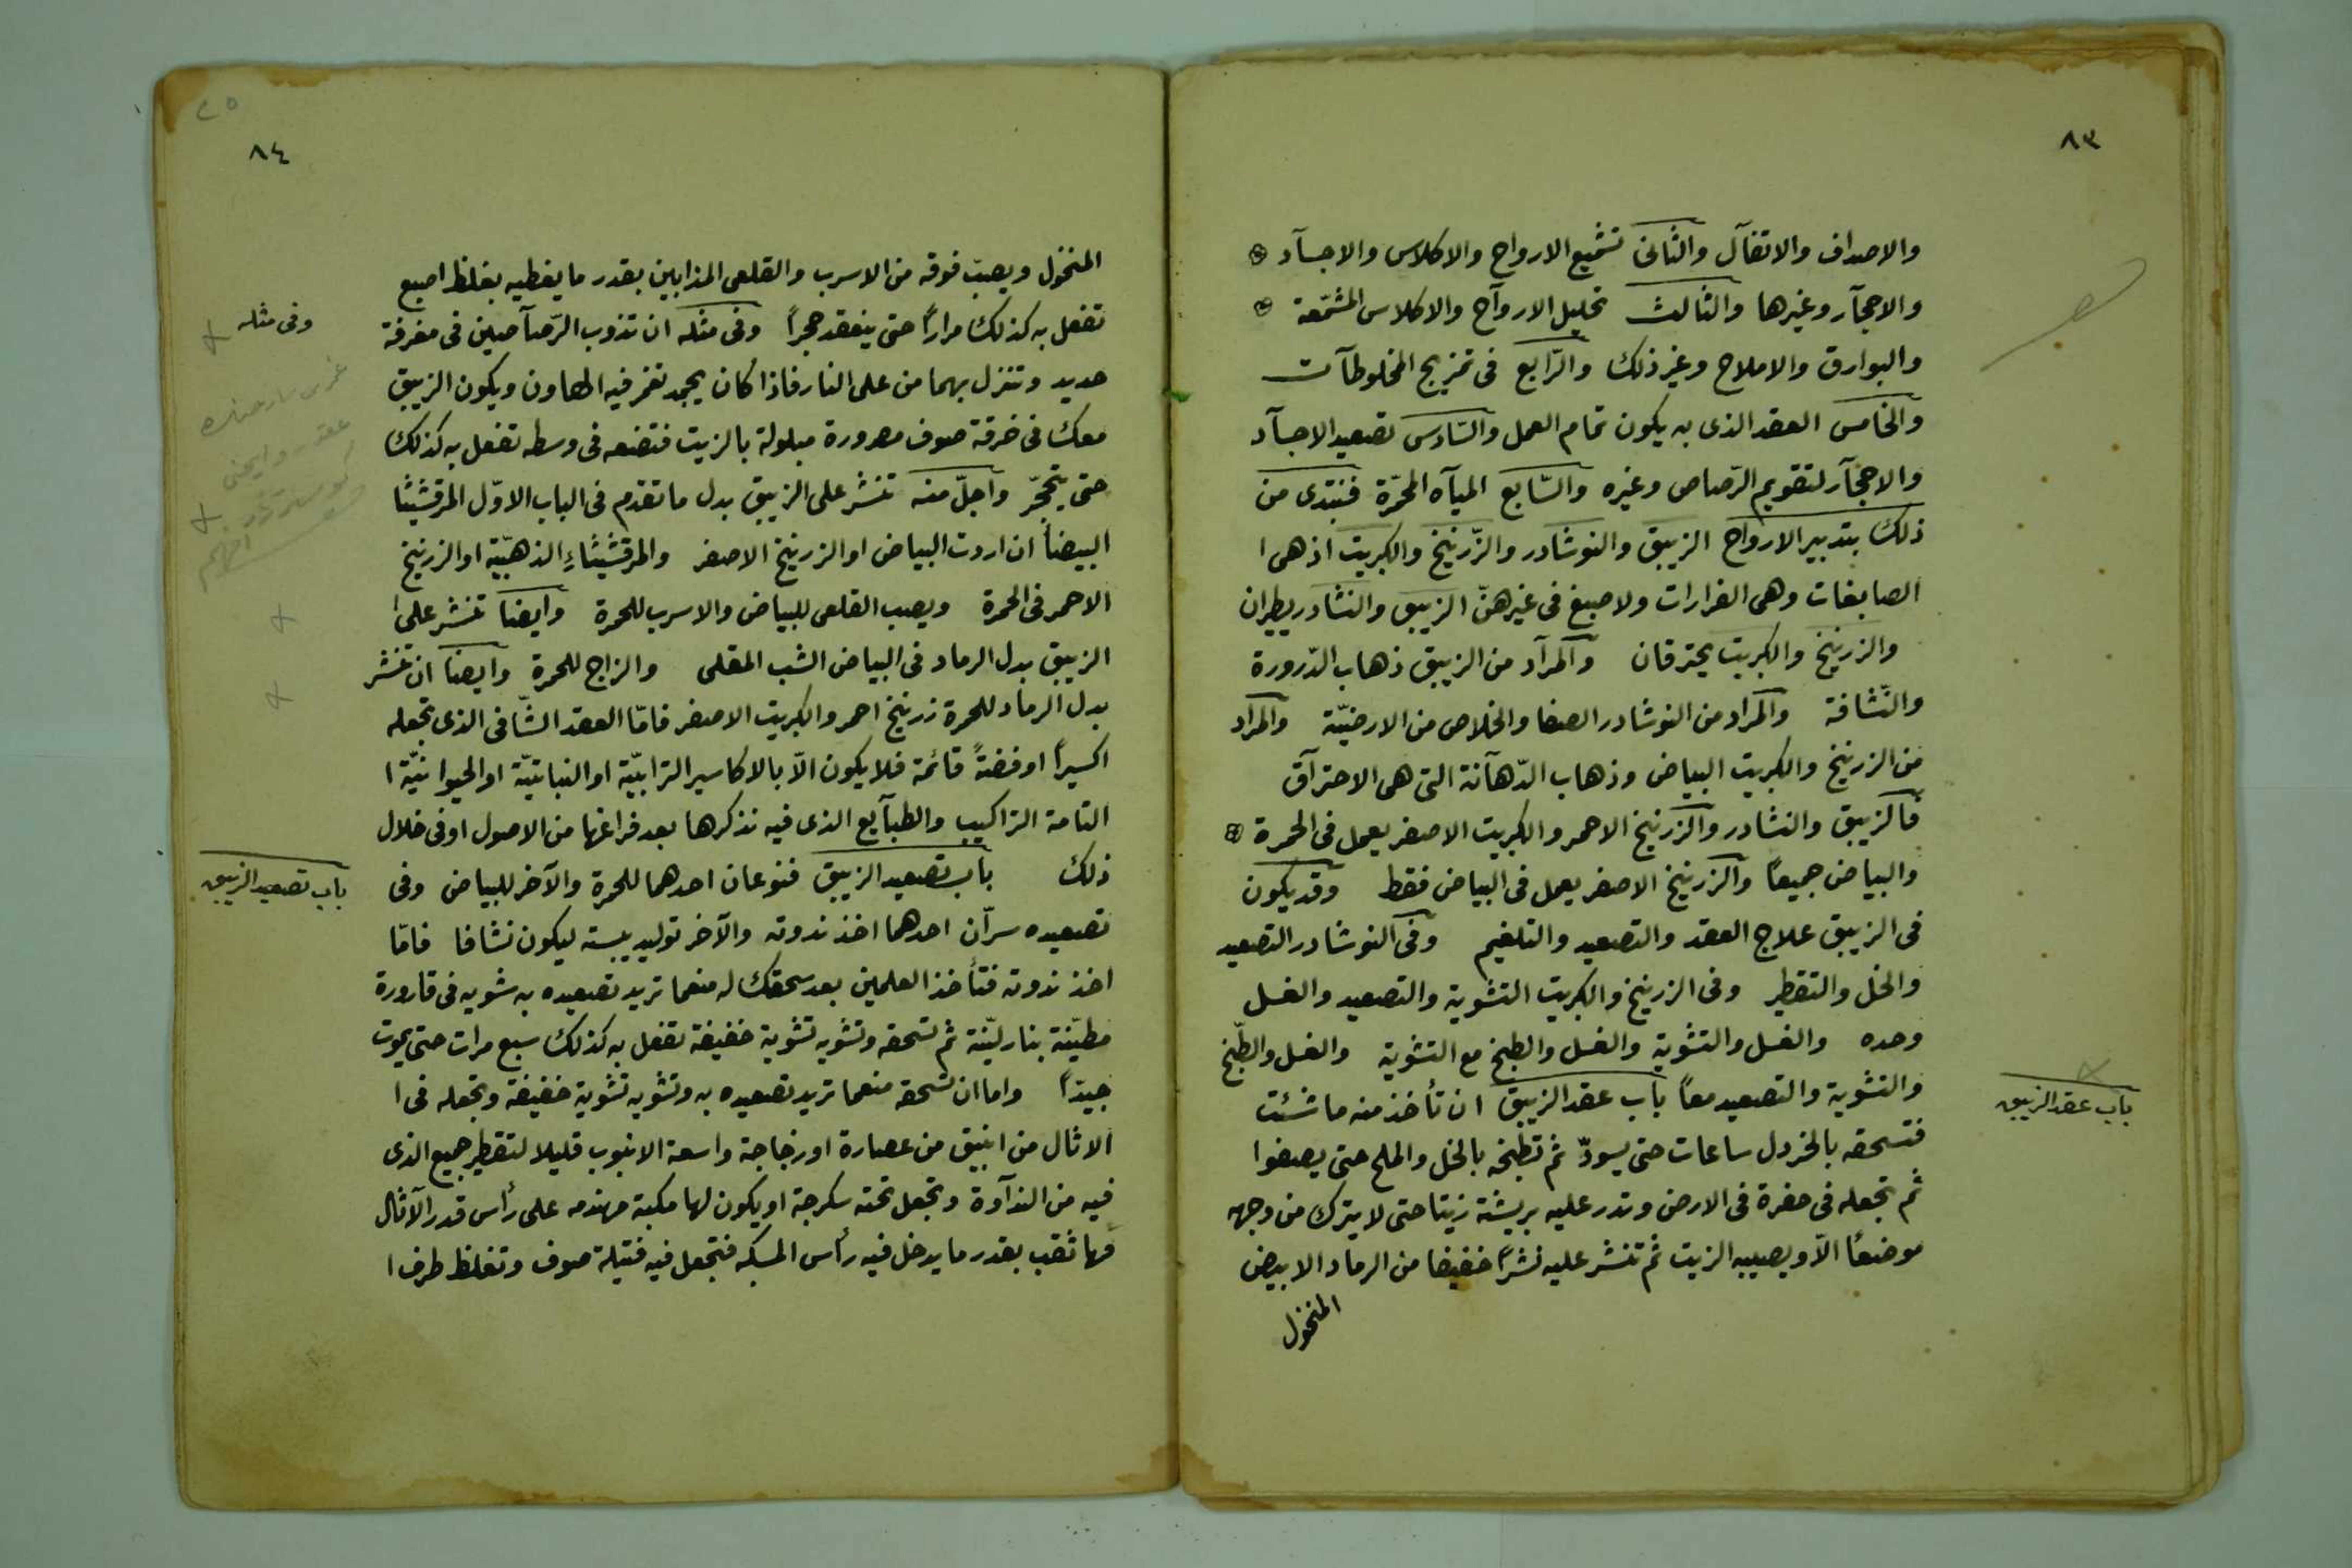 ٨٣
والاصداف والاثفآل والثانى تشميع الارواح والاكلاس والاجسآد
والاحجآر وغيرها والثالث تحليل الارواح والاكلاس المشمّعة
والبوارق والاملاح وغير ذلك والرّابع فى تمزيج المخلوطآت
والخامس العقد الذى به يكون تمام العمل والسّادس تصعيد الاجسآد
والاحجآر لتقويم الرّصاص وغيره والسّابع الميآه المحمّرة فنبتدى من
ذلك بتدبير الارواح الزيبق والنوشادر والزّرنيخ والكبريت اذ هى ا
الصابغات وهى الفرارات ولا صبغ فى غيرهنّ الزيبق والنشادر يطيران
والزرنيخ والكبريت يحترقان والمرآد من الزيبق ذهاب الدّرورة
والنّشافة والمراد من النوشادر الصفا والخلاص من الارضيّة والمراد
من الزرنيخ والكبريت البياض وذهاب الدّهآنة التى هى الاحترآق
فالزيبق والنشادر والزرنيخ الاحمر والكبريت الاصفر يعمل فى الحمرة
والبياض جميعًا والزرنيخ الاصفر يعمل فى البياض فقط وقد يكون
فى الزيبق علاج العقد والتصعيد والتلغيم وفى النوشادر التصعيد
والخل والتقطير وفى الزرنيخ والكبريت التشوية والتصعيد والغسل
وحده والغسل والتشوية والغسل والطبخ مع التشوية والغسل والطّبخ
والتشوية والتصعيد معًا باب عقد الزيبق ان تأخذ منه ما شئت
باب عقد الزيبق
فتسحقه بالخردل ساعات حتى يسودّ ثم تطبخه بالخل والملح حتى يصفوا
ثم تجعله فى حفرة فى الارض وتدر عليه بريشة زيتا حتى لا يترك من وجهه
موضعًا الاّ ويصيبه الزيت ثم تنشر عليه نشرًا خفيفا من الرماد الابيض
المنخول
٨٤
٢٥
المنخول ويصبّ فوقه من الاسرب والقلعى المذابين بقدر ما يغطيه بغلظ اصبع
تفعل به كذلك مرارًا حتى ينعقد حجرًا وفى مثله ان تذوب الرّصآصين فى مغرفة
وفى مثله
حديد وتنزل بهما من على النار فاذا كان يجمد تغمر فيه الهاون ويكون الزيبق
معك فى خرقة صوف مصرورة مبلولة بالزيت فتضعه فى وسطه تفعل به كذلك
حتى يتحجّر واجلّ منه تنشر على الزيبق بدل ما تقدم فى الباب الاوّل المرقشيثا
البيضآ ان اردت البياض او الزرنيخ الاصفر والمرقشيثاء الذهبّية او الزرنيخ
الاحمر فى الحمرة ويصب القلعى للبياض والاسرب للحمرة وايضا تنشر على ا
الزيبق بدل الرماد فى البياض الشب المقلى والزاج للحمرة وايضا ان تنشر
بدل الرماد للحمرة زرنيخ احمر والكبريت الاصفر فامّا العقد الشّافى الذى تجعله
اكسيرًا او فضةً قائمة فلا يكون الاّ بالاكاسير الترابيّة او النباتيّة او الحيوانيّة ا
التامة التراكيب والطبآيع الذى فيه نذكرها بعد فراغها من الاصول او فى خلال
ذلك باب تصعيد الزيبق فنوعان احدهما للحمرة والآخر للبياض وفى
باب تصعيد الزيبق
تصعيده سرّان احدهما اخذ ندوته والآخر توليد يبسته ليكون نشافا فامّا
اخذ ندوته فتأخذ العلمين بعد سحقك له منعما تريد تصعيده به شويه فى قارورة
مطيّنة بنار ليّنة ثم تسحقه وتشويه تشوية خفيفة تفعل به كذلك سبع مرات حتى يموت
جيدًا واما ان تسحقه منعما تريد تصعيده به وتشويه تشوية خفيفة وتجعله فى ا
الاثال من انبيق من عصارة او زجاجة واسعة الانبوب قليلا لتقطير جميع الذى
فيه من الندآوة وتجعل تحته سكرجة او يكون لها مكبة مهندمه على رأس قدر الآثال
فها ثقب بقدر ما يدخل فيه رأس المسكه فتجعل فيه فتيلة صوف وتغلظ طرف ا